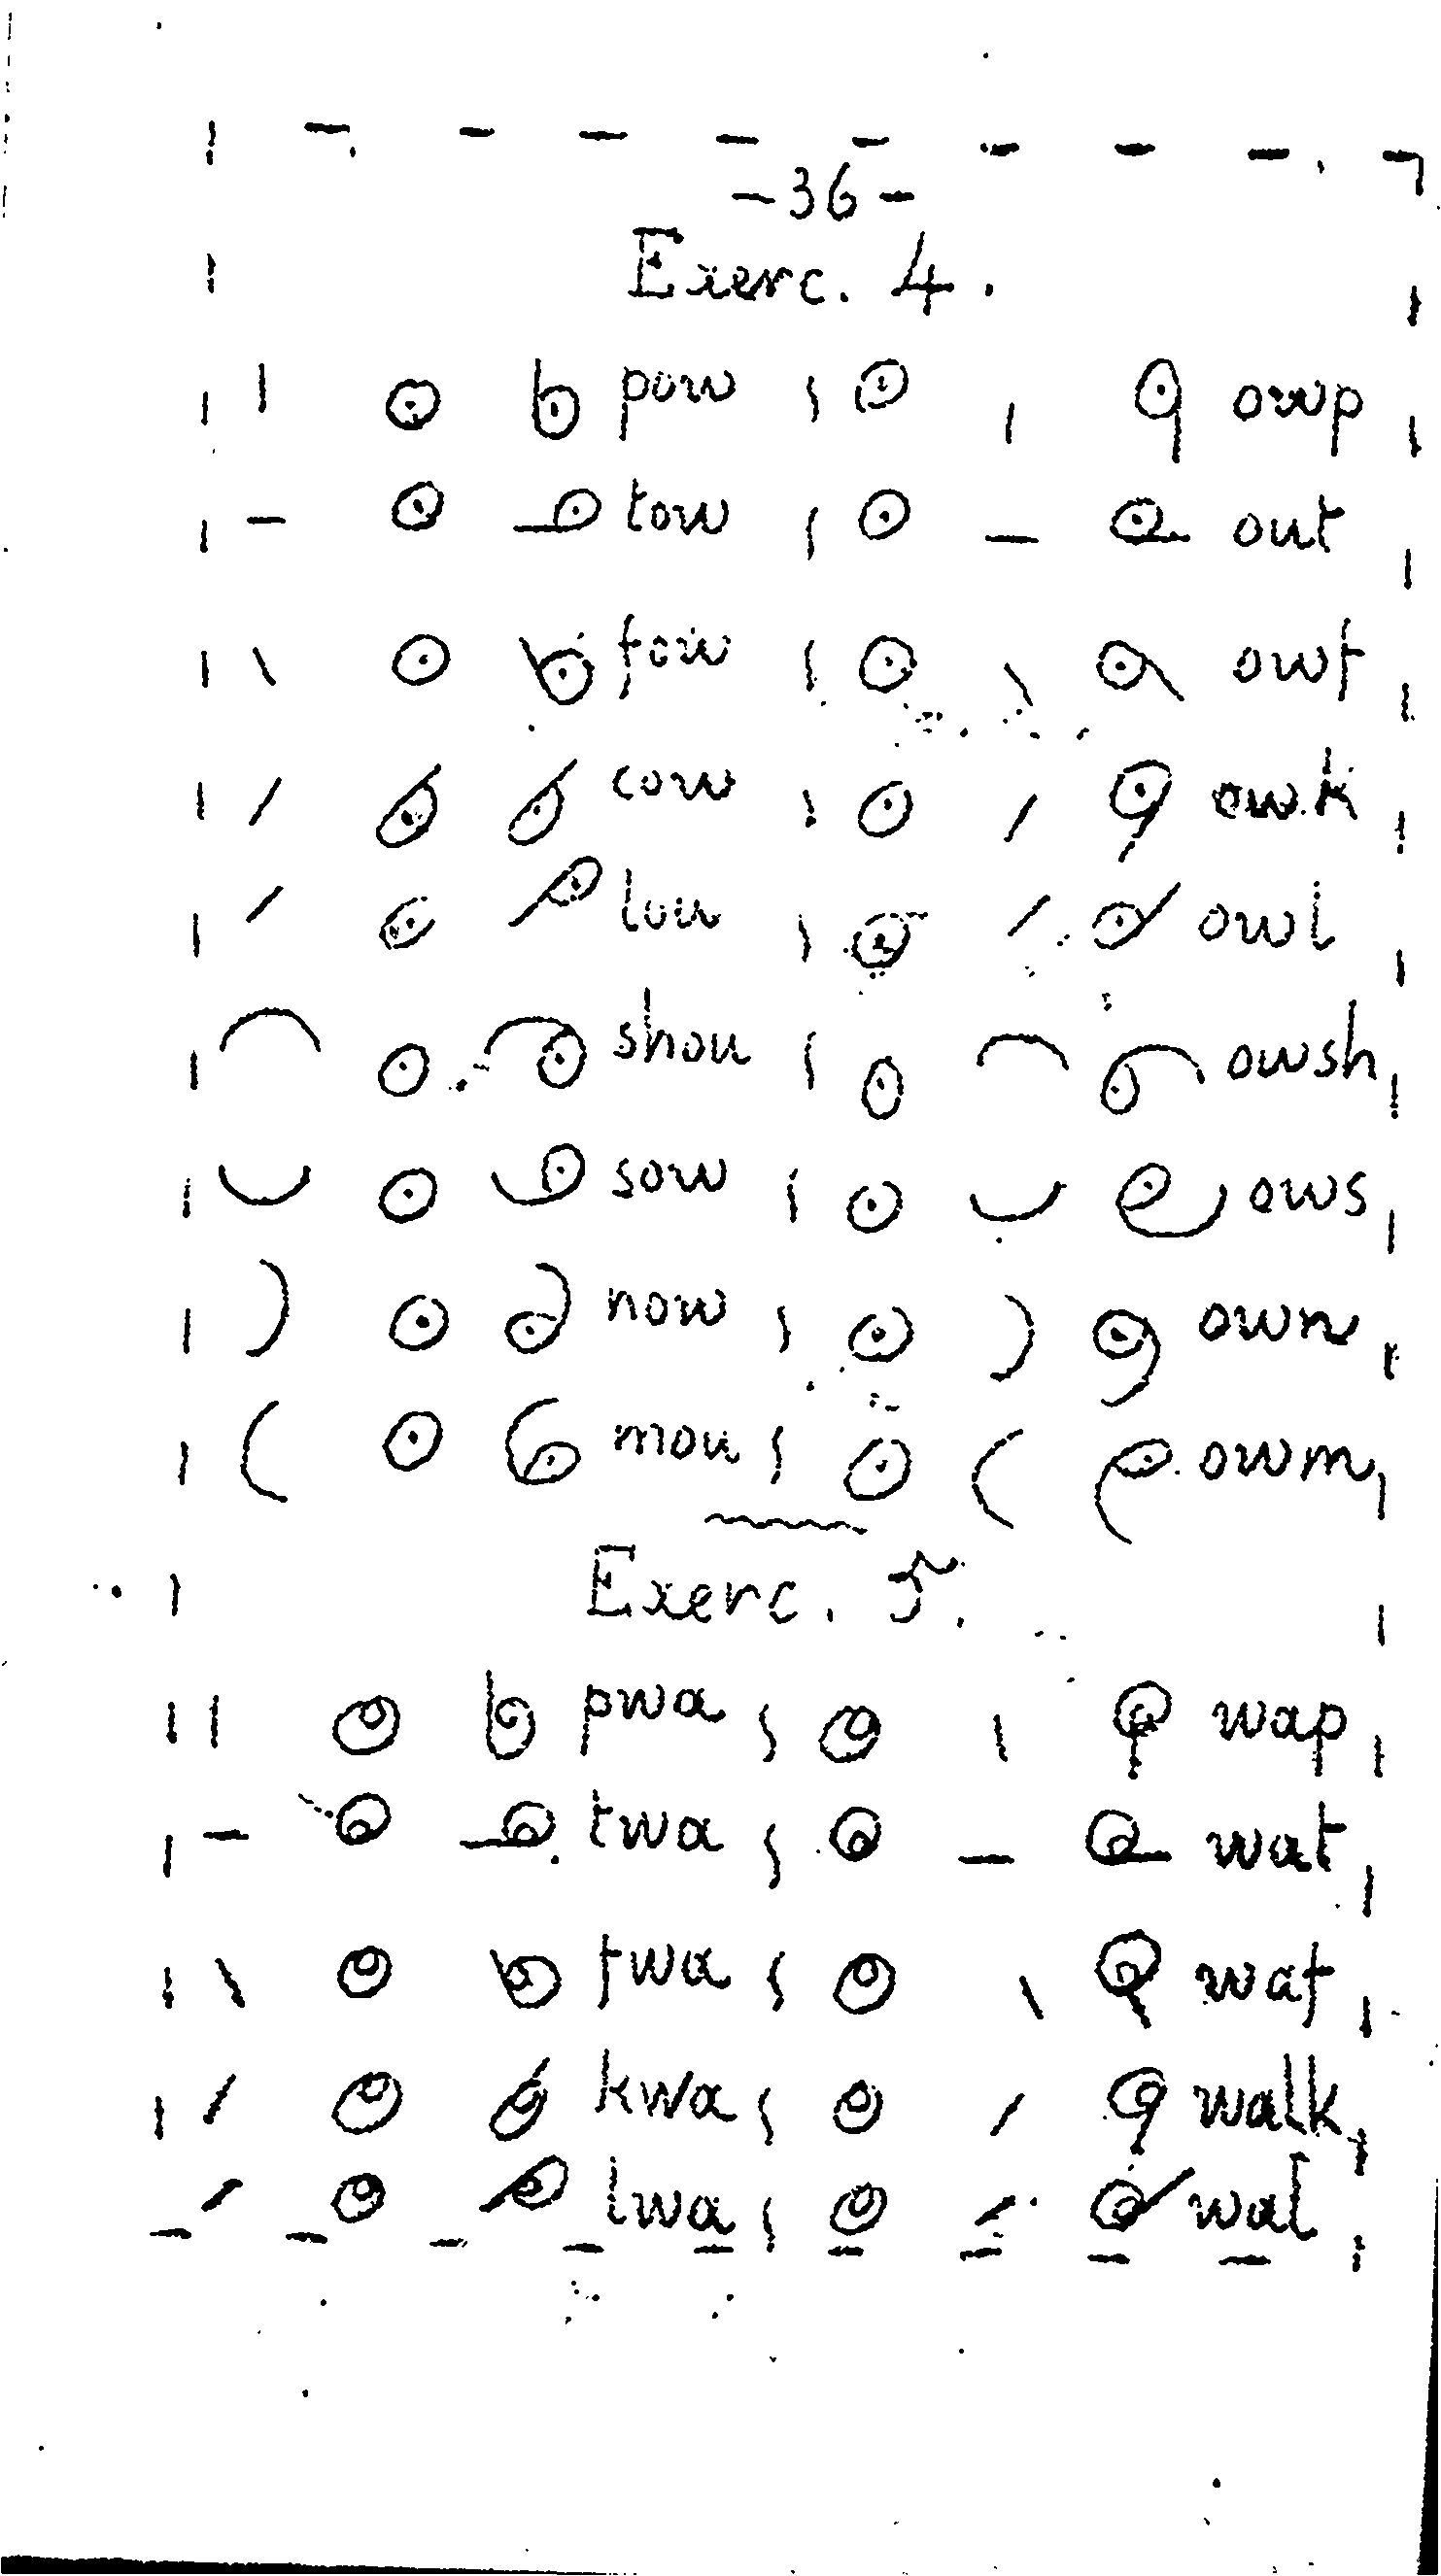 -36-
Exerc. 4.
pow owp
tow out
fow owf
cow owk
lou owl
shou owsh
sow ows
now own
mou owm
Exerc. 5.
pwa wap
twa wat
fwa waf
kwa walk
lwa wal